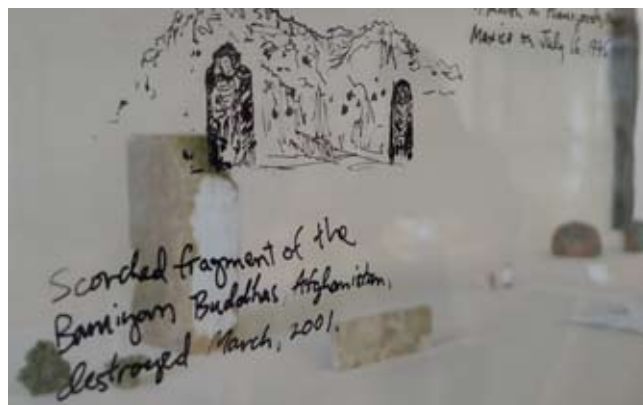 Mexico on July 16
Scorched fragment of the
Bamiyam Buddhas, Afghanistan,
destroyed March, 2001.